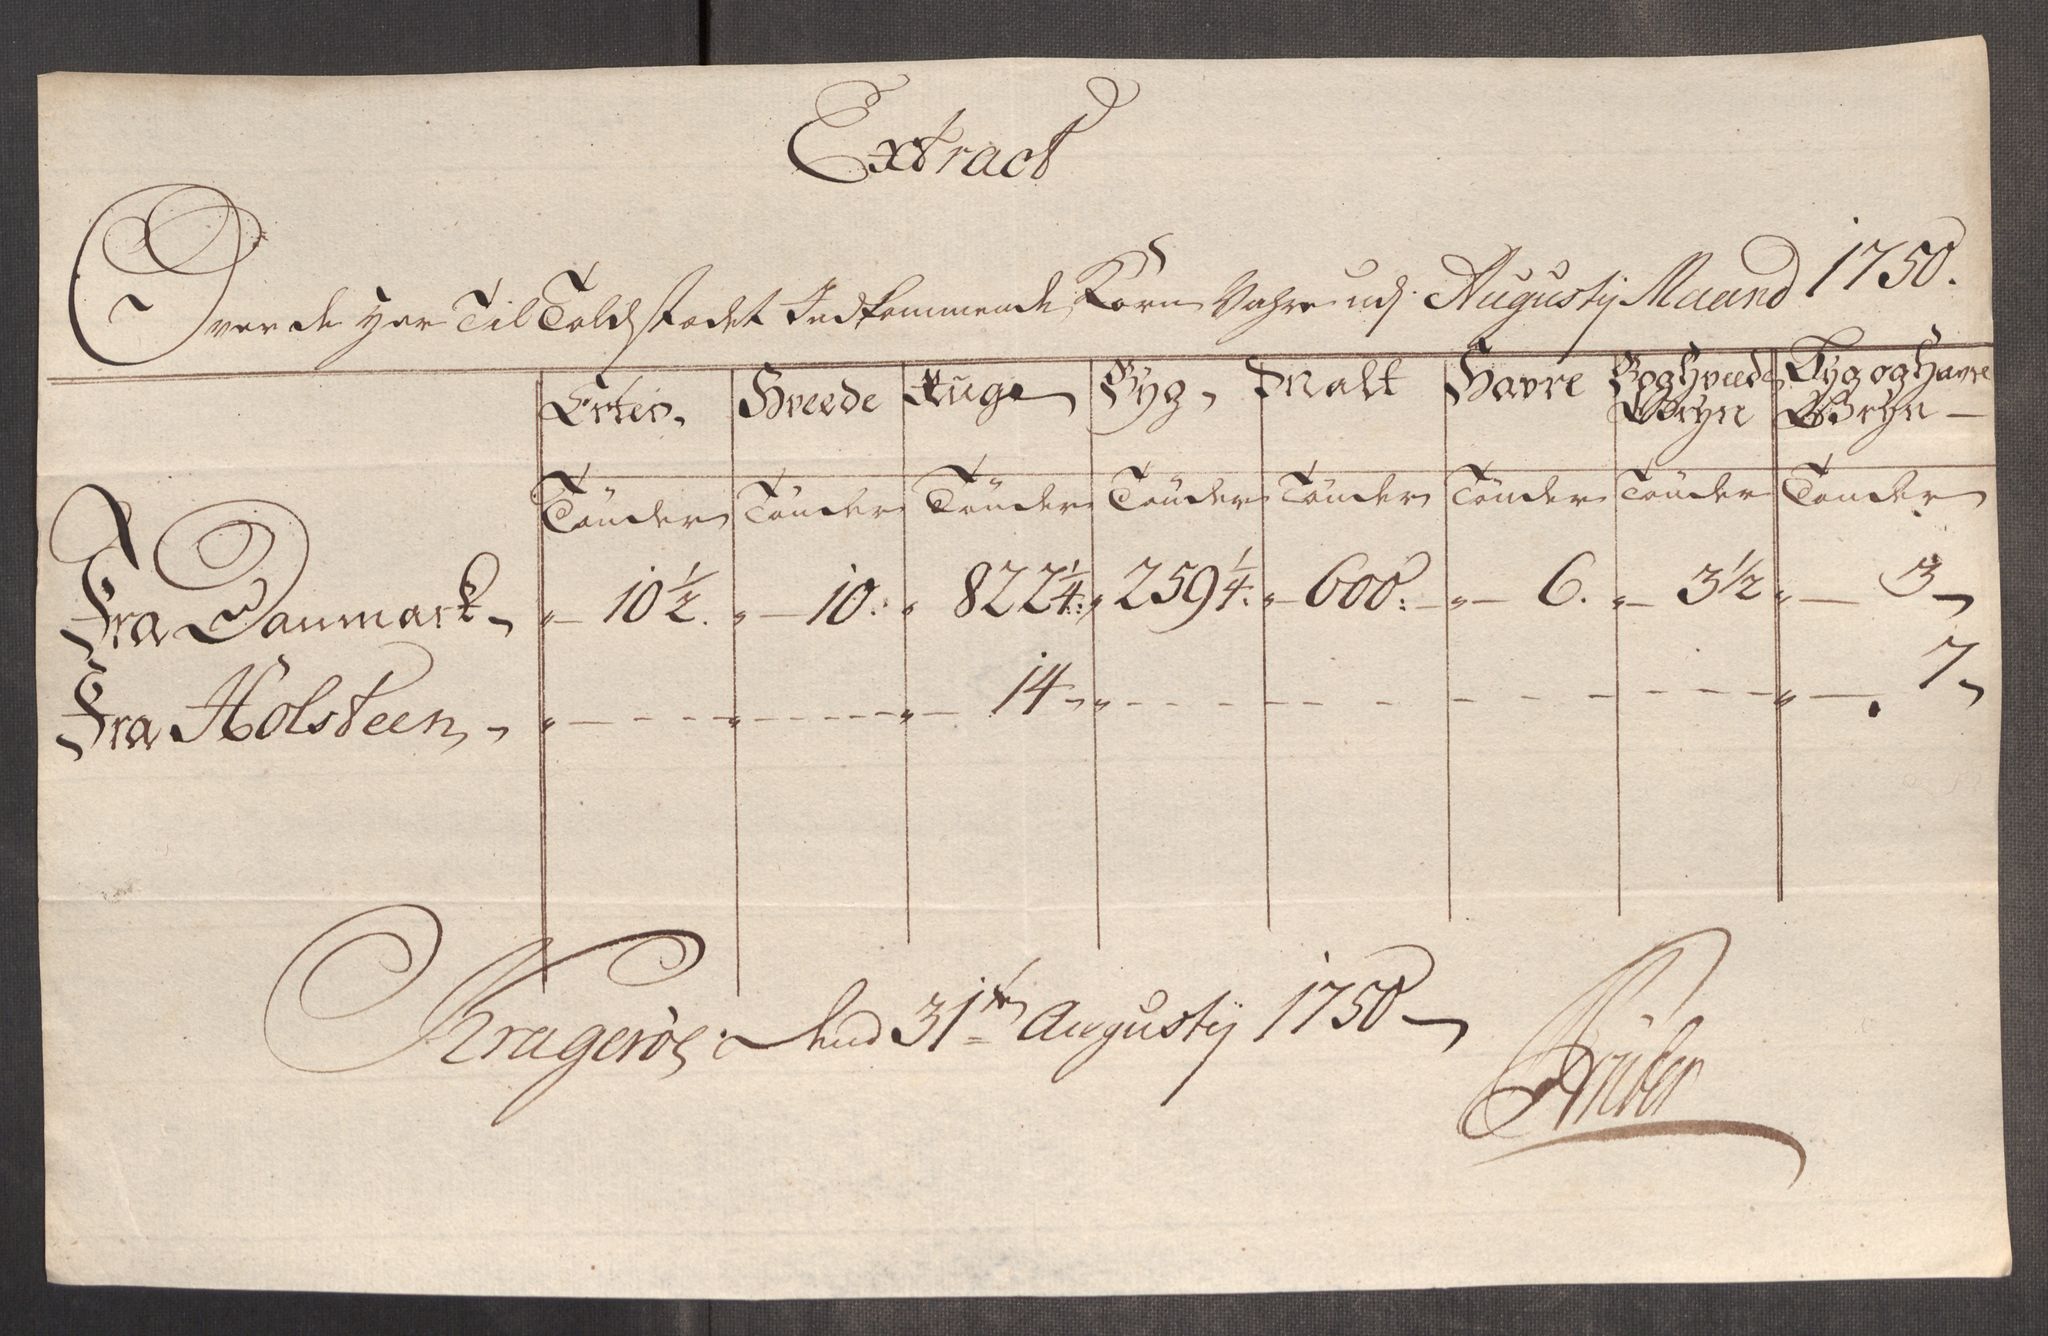 Extract
Over de her Til Toldstædet Indkommende Korn Vahre udj Augustij Maand 1750.
Erter, Hveede Ruge Byg, Malt Havre Boghveede Byg og Havre
Gryn Gryn —
Tönder Tönder Tönder Tönder Tönder Tönder Tönder Tönder
Fra Danmark, „ — 10½. „ — 10. „ 822¼. „ 259¼. „ — 600. — „ — 6. „ — 3½ „ — 3,
Fra Holsteen, „ — — — — „ — — — — „ — 14 „ — — — — — — — — — — — — „ — . 7,
Krageröe, dend 31te Augustij 1750